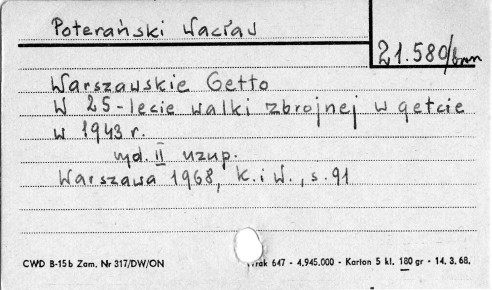 Poterański Wacław
21.580/bnn
Warszawskie Getto
W 25-lecie walki zbrojnej w getcie
w 1943 r.
wyd. II uzup.
Warszawa 1968, K. i W., s. 91
CWD B-15b Zam. Nr 317/DW/ON
rak 647 - 4.945.000 - Karton 5 kl. 180 gr - 14. 3. 68.